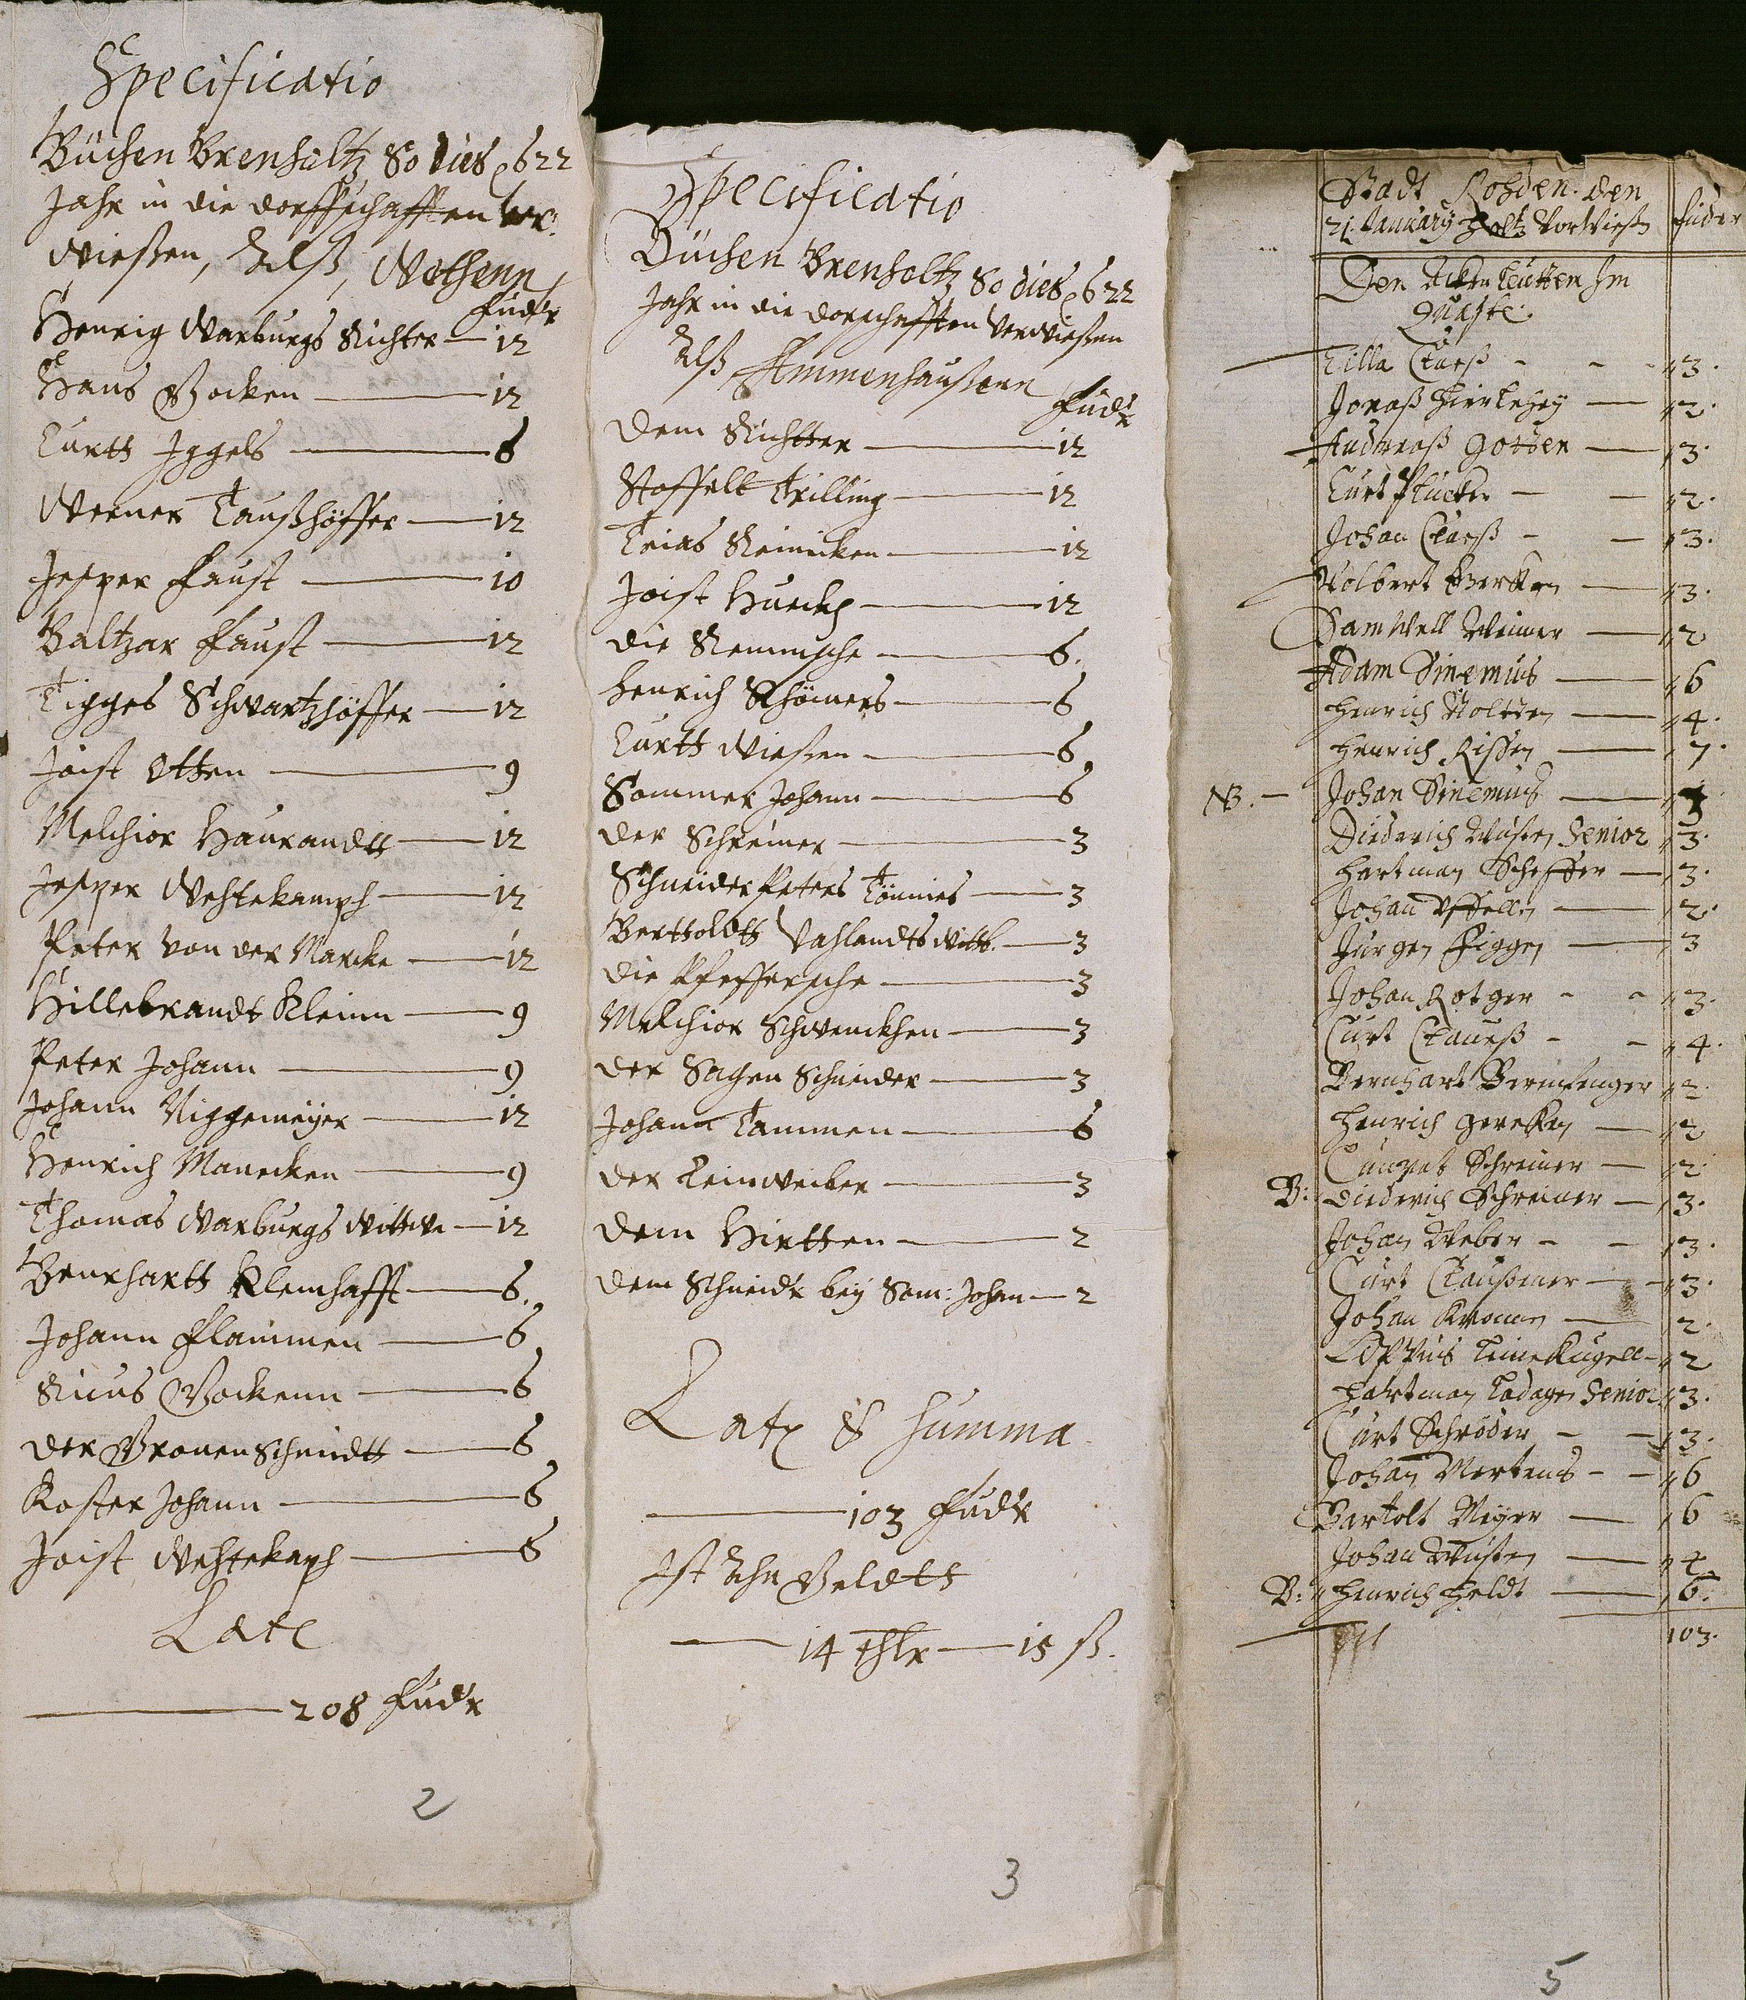 Specificatio
Büchen Brenholtz So dies 622
Jahr in die dorffschafften ver
wießen, Alß, Wethenn
Fudr
Henrig Warburgs Richter — 12
Hans Bocken — 12
Curtt Iggels — 6
Werner Taußhöffer — 12
Jesper Faust — 10
Baltzar Faust — 12
Tigges Schwartzhöffer — 12
Joist Otten — 9
Melchior Haurandtt — 12
Jesper Wehtekamph — 12
Peter von der Marcke — 12
Hillebrandt Kleinn — 9
Peter Johann — 9
Johann Niggemeÿer — 12
Henrich Manecken — 9
Thomas Warburgs Wittwe — 12
Bernhartt Kleinhafft — 6
Johann Flammen — 6
Bockenn — 6
der Schmidtt — 6
Koster Johann — 6
Joist Wehtekaph — 6
Late
— 208 Fudr
2
Specificatio
Büchen Brenholtz So dies 622
Jahr in die dorschafften verwießen
Alß Ammenhaußenn
Fudr
Dem Richtter — 12
Stoffell Trilling — 12
Reinicken — 12
Joist — 12
die — 6
Henrich — 6
Curtt Wießen — 6
Sommer Johann — 6
der Schreiner — 3
Schneider Peters Tönnies — 3
Bertholdtt Vahlandts Witt. — 3
die Pfeffersche — 3
Melchior Schwenckhen — 3
der Sagen Schneider — 3
Johann Tammen — 6
der Leinweiber — 3
dem Hirtten — 2
dem Schneidr beÿ Som: Johan — 2
Late & Summa
— 103 Fudr
Ist Ahn Geldtt
— 14 thlr — 15 ß.
3
Stadt Rohden. den
21. January Holtz Vorwießen
Fuder
Den Ackerleutten Im
Quaste.
Claeß - - 3.
Jonaß — 2.
Andreaß Gotten — 3.
Curt Plücker - - 2.
Johan Claeß - - 3.
Volbert Gercken — 3.
Samwell Weimer — 2
Adam Sinemus — 6
Henrich Nolten — 4.
Henrich Rissen — 7.
NB. — Johan Sinemus — 3
Diederich Wüsten Senior 3.
Hartman Scheffer — 3.
Johan Uffelln — 2.
Jurgen Figgen — 3
Johan Rotger - - 3.
Curt Claueß - - 4.
Bernhart 2.
Henrich Gercken — 2
Cunrat Schreiner — 2
B: Diederich Schreiner — 3.
Johan Weber - - 3.
Curt Claußmer — 3.
Johan — 2.
Leinekugell — 2
Hartman Ladage Senior 3.
Curt Schröder - - 3.
Johan Mertens - - 6
Bartolt Meÿer — 6
Johan Wüsten — 4
B: Henrich Heldt — 6.
103.
5